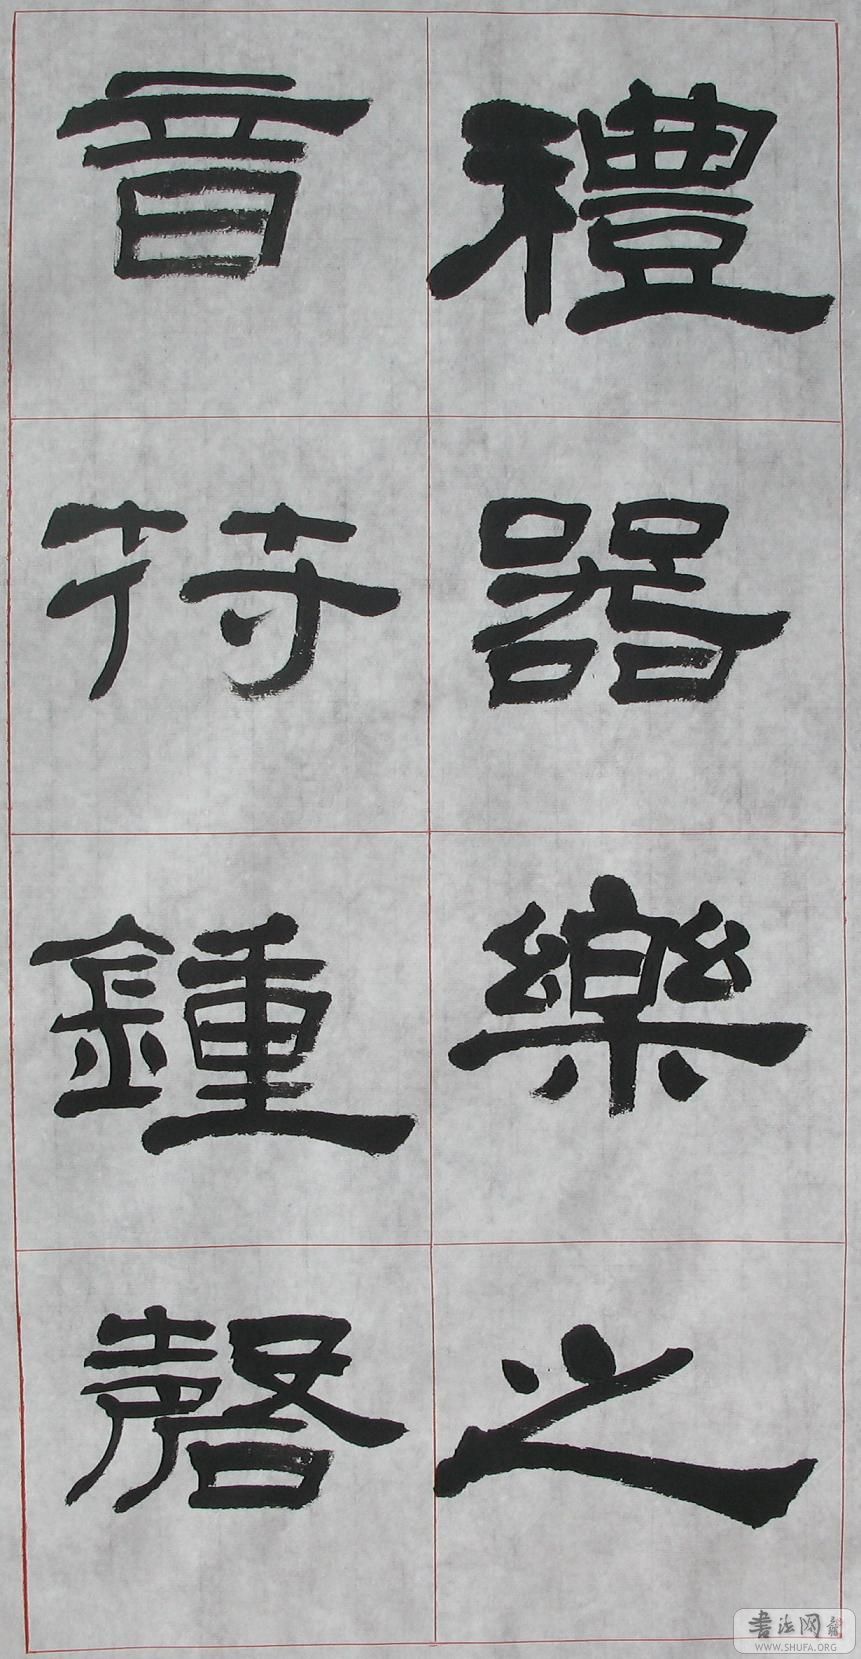 禮器樂之
音符鍾磬
書法网
WWW.SHUFA.ORG